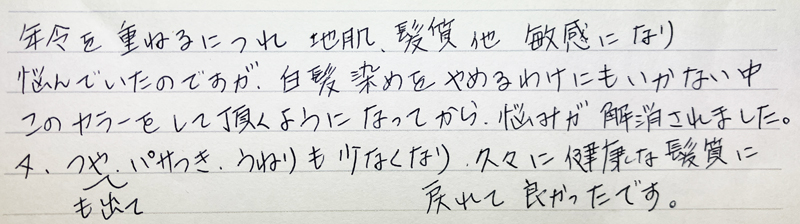 年令を重ねるにつれ 地肌、髪質他 敏感になり
悩んでいたのですが、白髪染めをやめるわけにもいかない中
このカラーをして頂くようになってから、悩みが解消されました。
又、つや、パサつき、うねりも少なくなり、久々に健康な髪質に
も出て
戻れて良かったです。